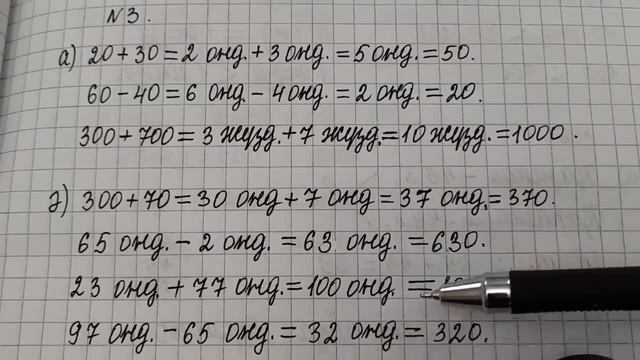 №3.
а) 20+30=2 онд.+3 онд.=5 онд.=50.
60-40=6 онд.-4 онд.=2 онд.=20.
300+700=3 жүзд.+7 жүзд.=10 жүзд.=1000.
ә) 300+70=30 онд+7 онд=37 онд.=370.
65 онд.-2 онд.=63 онд.=630.
23 онд.+77 онд.=100 онд.=
97 онд.-65 онд.=32 онд.=320.